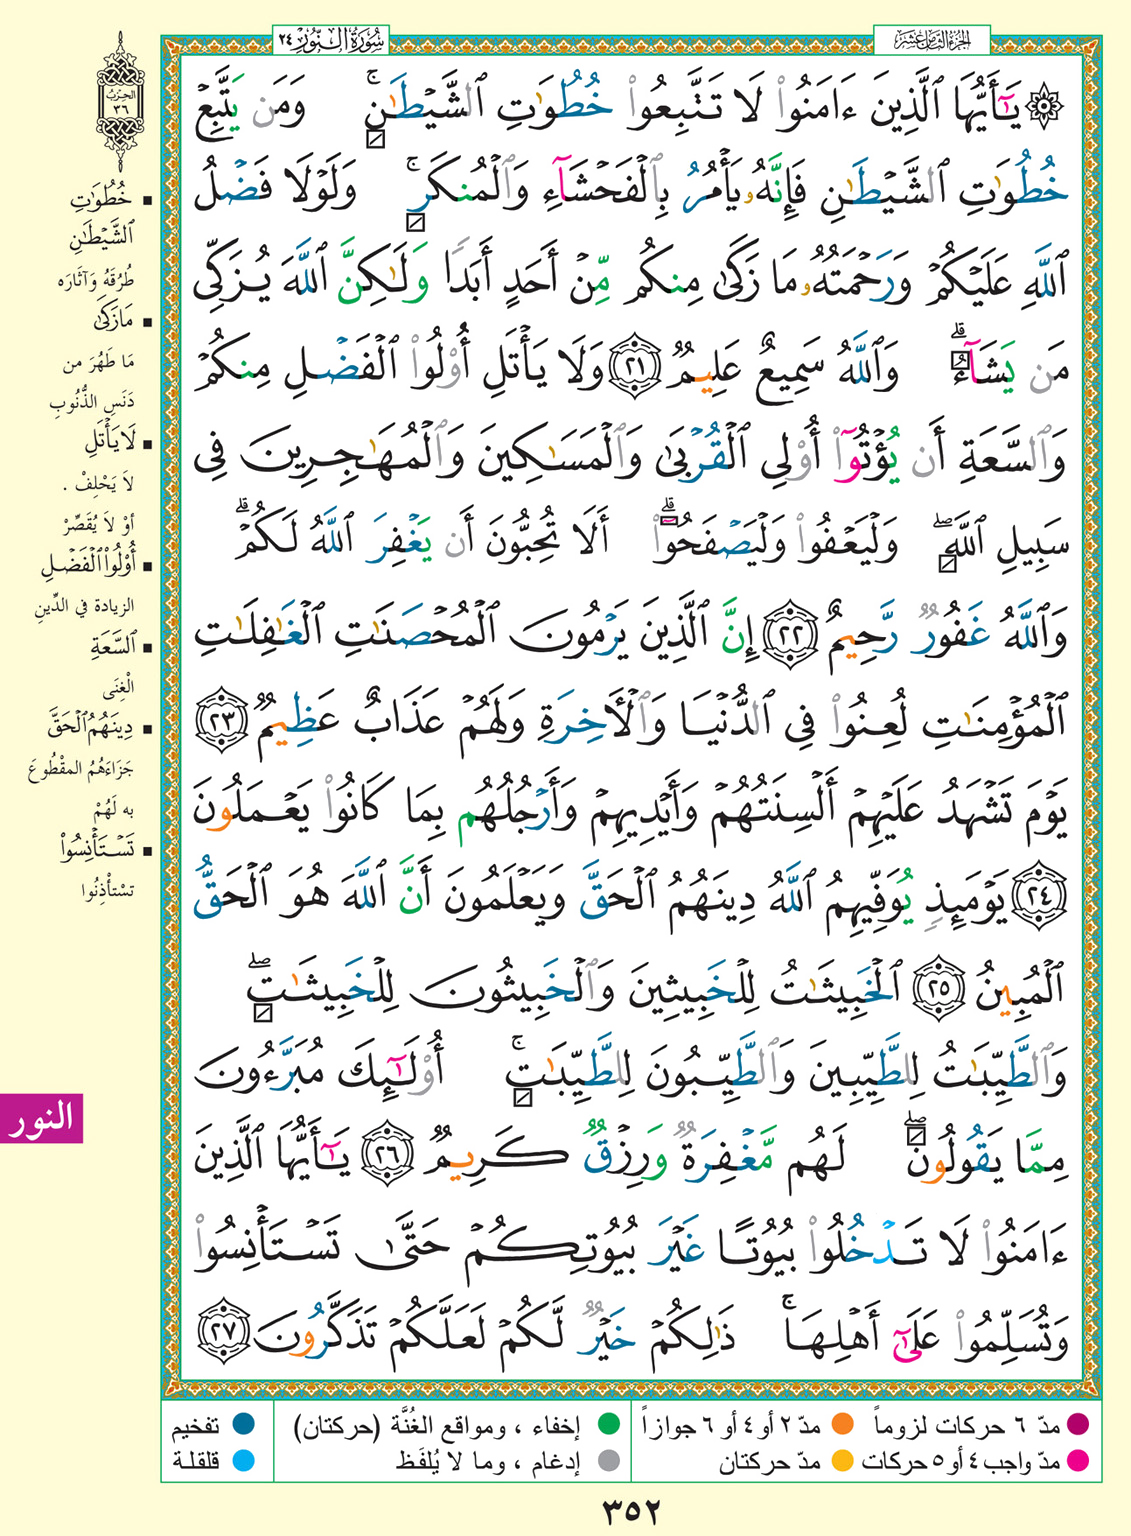 سُورَةُ النُّورِ ٢٤
الجزء الثامن عشر
الحِزبُ
٣٦
۞ يَٰٓأَيُّهَا ٱلَّذِينَ ءَامَنُوا۟ لَا تَتَّبِعُوا۟ خُطُوَٰتِ ٱلشَّيْطَٰنِ ۚ وَمَن يَتَّبِعْ
خُطُوَٰتِ ٱلشَّيْطَٰنِ فَإِنَّهُۥ يَأْمُرُ بِٱلْفَحْشَآءِ وَٱلْمُنكَرِ ۚ وَلَوْلَا فَضْلُ
ٱللَّهِ عَلَيْكُمْ وَرَحْمَتُهُۥ مَا زَكَىٰ مِنكُم مِّنْ أَحَدٍ أَبَدًا وَلَٰكِنَّ ٱللَّهَ يُزَكِّى
مَن يَشَآءُ ۗ وَٱللَّهُ سَمِيعٌ عَلِيمٌ ٢١ وَلَا يَأْتَلِ أُو۟لُوا۟ ٱلْفَضْلِ مِنكُمْ
وَٱلسَّعَةِ أَن يُؤْتُوٓا۟ أُو۟لِى ٱلْقُرْبَىٰ وَٱلْمَسَٰكِينَ وَٱلْمُهَٰجِرِينَ فِى
سَبِيلِ ٱللَّهِ ۖ وَلْيَعْفُوا۟ وَلْيَصْفَحُوٓا۟ ۗ أَلَا تُحِبُّونَ أَن يَغْفِرَ ٱللَّهُ لَكُمْ ۗ
وَٱللَّهُ غَفُورٌ رَّحِيمٌ ٢٢ إِنَّ ٱلَّذِينَ يَرْمُونَ ٱلْمُحْصَنَٰتِ ٱلْغَٰفِلَٰتِ
ٱلْمُؤْمِنَٰتِ لُعِنُوا۟ فِى ٱلدُّنْيَا وَٱلْءَاخِرَةِ وَلَهُمْ عَذَابٌ عَظِيمٌ ٢٣
يَوْمَ تَشْهَدُ عَلَيْهِمْ أَلْسِنَتُهُمْ وَأَيْدِيهِمْ وَأَرْجُلُهُم بِمَا كَانُوا۟ يَعْمَلُونَ
٢٤ يَوْمَئِذٍ يُوَفِّيهِمُ ٱللَّهُ دِينَهُمُ ٱلْحَقَّ وَيَعْلَمُونَ أَنَّ ٱللَّهَ هُوَ ٱلْحَقُّ
ٱلْمُبِينُ ٢٥ ٱلْخَبِيثَٰتُ لِلْخَبِيثِينَ وَٱلْخَبِيثُونَ لِلْخَبِيثَٰتِ ۖ
وَٱلطَّيِّبَٰتُ لِلطَّيِّبِينَ وَٱلطَّيِّبُونَ لِلطَّيِّبَٰتِ ۚ أُو۟لَٰٓئِكَ مُبَرَّءُونَ
مِمَّا يَقُولُونَ ۖ لَهُم مَّغْفِرَةٌ وَرِزْقٌ كَرِيمٌ ٢٦ يَٰٓأَيُّهَا ٱلَّذِينَ
ءَامَنُوا۟ لَا تَدْخُلُوا۟ بُيُوتًا غَيْرَ بُيُوتِكُمْ حَتَّىٰ تَسْتَأْنِسُوا۟
وَتُسَلِّمُوا۟ عَلَىٰٓ أَهْلِهَا ۚ ذَٰلِكُمْ خَيْرٌ لَّكُمْ لَعَلَّكُمْ تَذَكَّرُونَ ٢٧
▪ خُطُوَٰتِ
ٱلشَّيْطَٰنِ
طُرُقَهُ وَآثَارَه
▪ مَا زَكَىٰ
مَا طَهُرَ من
دَنَسِ الذُّنُوبِ
▪ لَا يَأْتَلِ
لاَ يَحْلِفْ .
أوْ لاَ يُقَصِّرْ
▪ أُو۟لُوا۟ ٱلْفَضْلِ
الزيادة في الدِّينِ
▪ ٱلسَّعَةِ
الْغِنَى
▪ دِينَهُمُ ٱلْحَقَّ
جَزَاءَهُمُ المقْطُوعَ
به لَهُمْ
▪ تَسْتَأْنِسُوا۟
تَسْتأْذِنُوا
النور
مدّ ٦ حركات لزوماً
مدّ ٢ أو ٤ أو ٦ جوازاً
إخفاء ، ومواقع الغُنَّة (حركتان)
تفخيم
مدّ واجب ٤ أو ٥ حركات
مدّ حركتان
إدغام ، وما لا يُلفَظ
قلقلة
٣٥٢